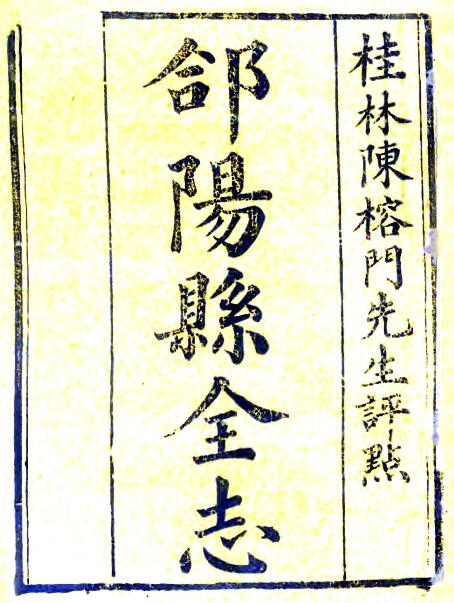 桂林陳榕門先生評點
郃陽縣全志